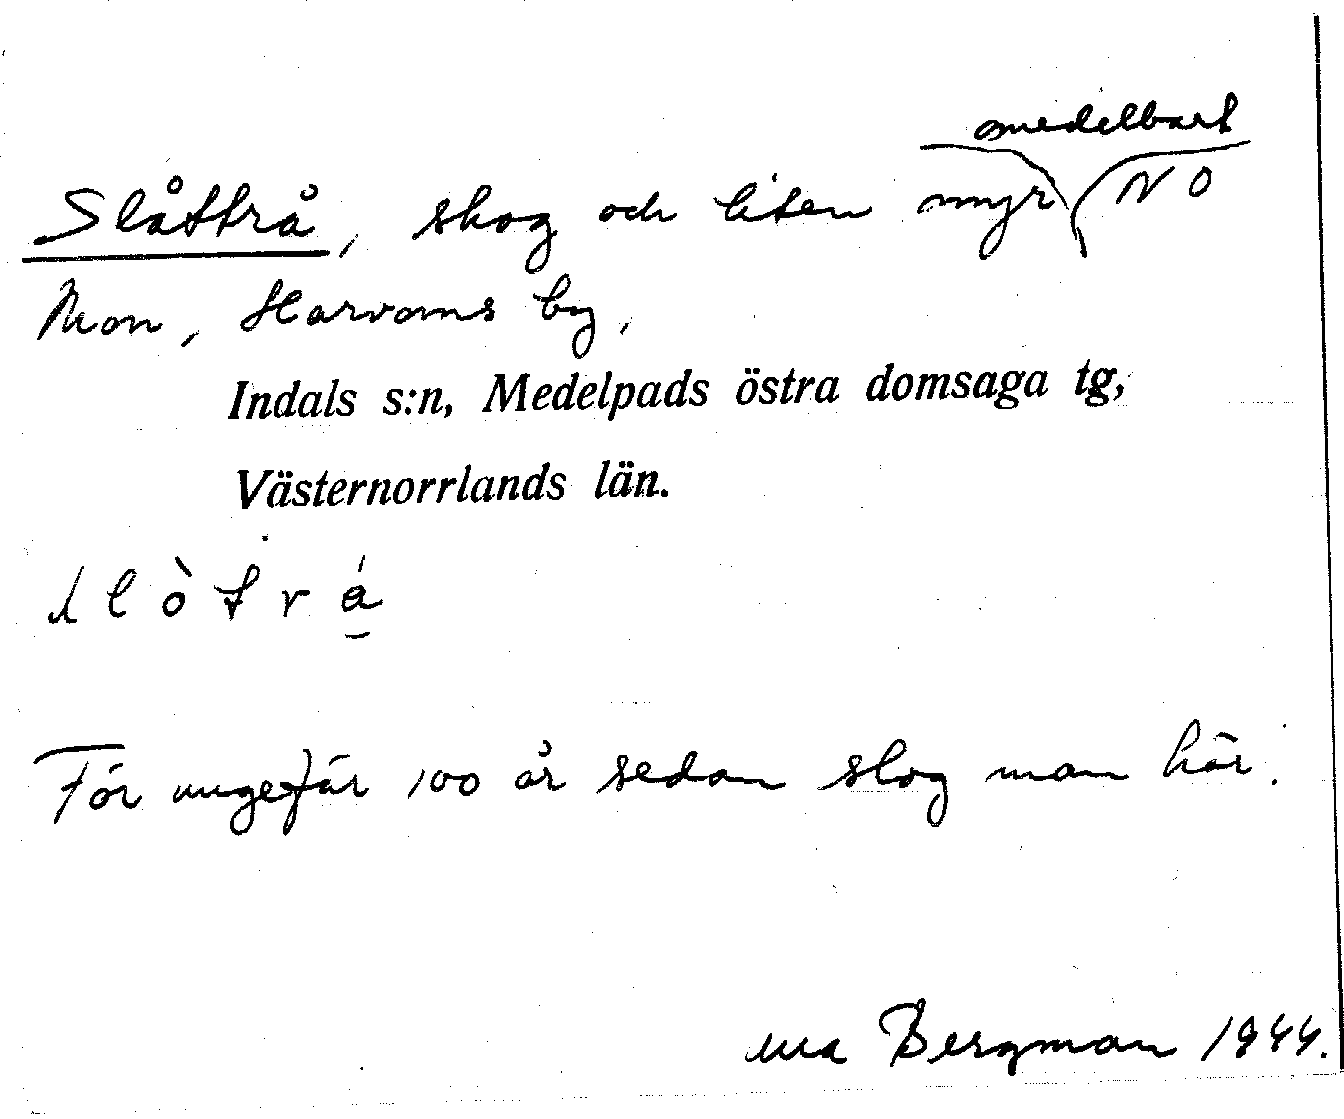 medelbart
Slåttrå, skog och liten myr NO
Mon, Harvoms by,
Indals s:n, Medelpads östra domsaga tg,
Västernorrlands län.
För ungefär 100 år sedan slog man här.
Bergman 1944.